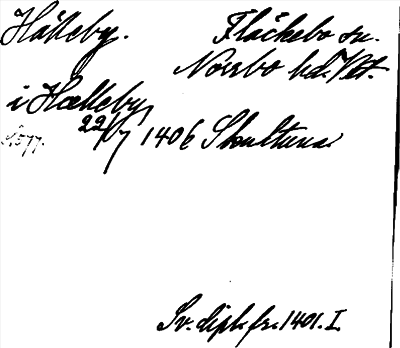 Hälleby. Fläckebo sn.
Norrbo hd. Vstl.
i Hælleby
22/7 1406 Skultuna
Sv. dipl. fr. 1401. I